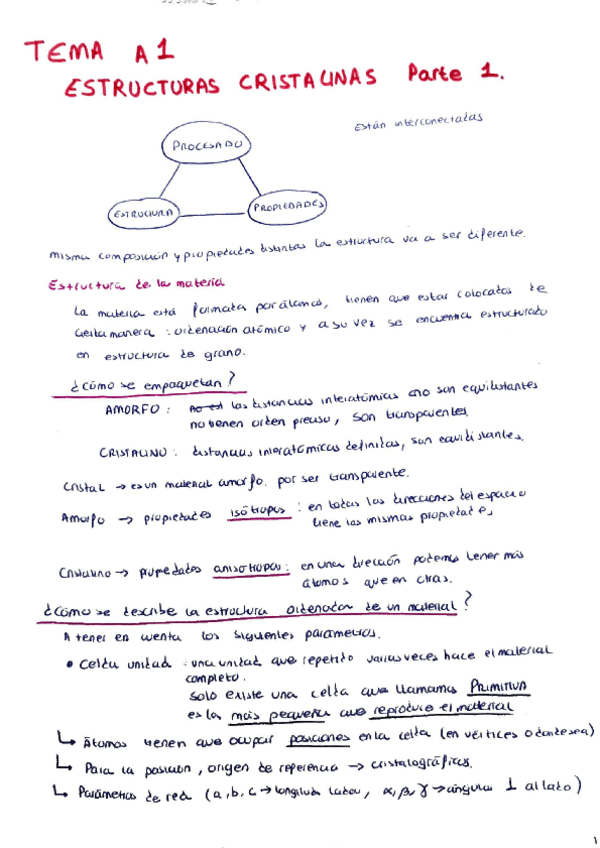 TEMA A1
ESTRUCTURAS CRISTALINAS Parte 1.
Están interconectadas
PROCESADO
ESTRUCTURA
PROPIEDADES
misma composición y propiedades distintas la estructura va a ser diferente.
Estructura de la materia
La materia está formada por átomos, tienen que estar colocados de
cierta manera : ordenación atómico y a su vez se encuentra estructurado
en estructura de grano.
¿Cómo se empaquetan?
AMORFO : no est las distancias interatómicas no son equidistantes
no tienen orden preciso, son transparentes.
CRISTALINO : distancias interatómicas definidas, son equidistantes.
Cristal → es un material amorfo. por ser transparente.
Amorfo → propiedades isótropas : en todas las direcciones del espacio
tiene las mismas propiedades
Cristalino → propiedades anisótropas : en una dirección podemos tener más
átomos que en otras.
¿Cómo se describe la estructura ordenada de un material?
A tener en cuenta los siguientes parámetros.
• Celda unidad : una unidad que repetido varias veces hace el material
completo.
Solo existe una celda que llamamos Primitiva
es la más pequeña que reproduce el material
↳ Átomos tienen que ocupar posiciones en la celda (en vértices o donde sea)
↳ Para la posición, origen de referencia → cristalográficas.
↳ Parámetros de red (a, b, c → longitud lados, α, β, γ → ángulos ⊥ al lado)
1